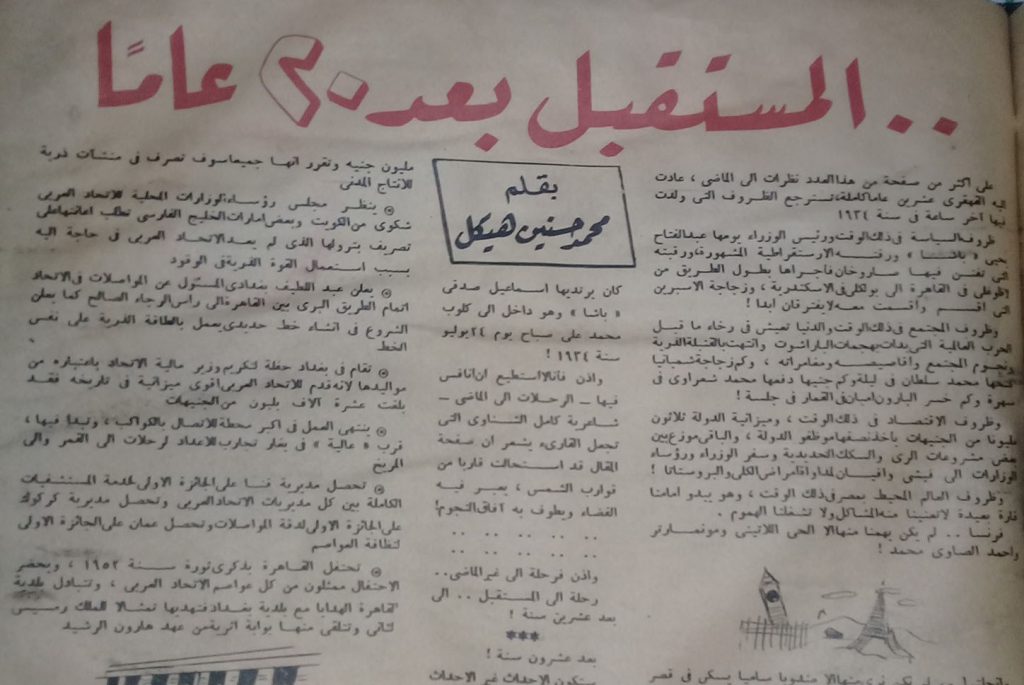 .. المستقبل بعد ٢٠ عامًا
على اكثر من صفحة من هذا العدد نظرات الى الماضى ، عادت
اليه القهقرى عشرين عاما كاملة، تسترجع الظروف التى ولدت
فيها آخر ساعة فى سنة ١٩٣٤
ظروف السياسة فى ذلك الوقت ورئيس الوزراء يومها عبد الفتاح
يحيى « باشا » ورقته الارستقراطية المشهورة، ورقبته
التى تفنن فيها صاروخان فأجراها بطول الطريق من
فى القاهرة الى بولكلى فى الاسكندرية ، وزجاجة الاسبرين
التى اقسم وأقسمت معه لا يفترقان ابدا !
وظروف المجتمع فى ذلك الوقت والدنيا تعيش فى رخاء ما قبل
الحرب العالمية التى بدأت بهجمات الباراشوت وانتهت بالقنبلة الذرية
ونجوم المجتمع وأقاصيصه ومغامراته ، وكم زجاجة شمبانيا
فتحها محمد سلطان فى ليلة وكم جنيها دفعها محمد شعراوى فى
سهرة وكم خسر البارون امبان فى القمار فى جلسة !
وظروف الاقتصاد فى ذلك الوقت ، وميزانية الدولة ثلاثون
مليونا من الجنيهات يأخذ نصفها موظفو الدولة ، والباقى موزع بين
بعض مشروعات الرى والسكك الحديدية وسفر الوزراء ورؤساء
الوزارات الى فيشى وافيان لمداواة أمراض الكلى والبروستاتا !
وظروف العالم المحيط بمصر فى ذلك الوقت ، وهو يبدو امامنا
قارة بعيدة لا تعنينا منه المشاكل ولا تشغلنا الهموم .
فرنسا .. لم يكن يهمنا منها الا الحى اللاتينى ومونمارتر
واحمد الصاوى محمد !
يكن منها الا مندوبا ساميا يسكن فى قصر
بقلم
محمد حسنين هيكل
كان يرتديها اسماعيل صدقى
« باشا » وهو داخل الى كلوب
محمد على صباح يوم ٢٤ يوليو
سنة ١٩٣٤ !
واذن فأنا لا استطيع ان انافس
فيها ــ الرحلات الى الماضى ــ
شاعرية كامل الشناوى التى
تجعل القارىء يشعر ان صفحة
المقال قد استحالت قاربا من
قوارب الشمس ، يعبر فيه
الفضاء ويطوف به آفاق النجوم!
.. .. .. .. ..
.. .. .. .. ..
واذن فرحلة الى غير الماضى ..
رحلة الى المستقبل .. الى
بعد عشرين سنة !
***
بعد عشرون سنة !
ستكون الاحداث غير الاحداث
مليون جنيه وتقرر انها جميعا سوف تصرف فى منشآت ذرية
للانتاج المدنى
ينظر مجلس رؤساء الوزارات المحلية للاتحاد العربى
شكوى من الكويت وبعض امارات الخليج الفارسى تطلب اعانتها على
تصريف بترولها الذى لم يعد الاتحاد العربى فى حاجة اليه
بسبب استعمال القوة الذرية فى الوقود
يعلن عبد اللطيف بغدادى المسئول عن المواصلات فى الاتحاد
اتمام الطريق البرى بين القاهرة الى رأس الرجاء الصالح كما يعلن
الشروع فى انشاء خط حديدى يعمل بالطاقة الذرية على نفس
الخط
تقام فى بغداد حفلة لتكريم وزير مالية الاتحاد باعتباره من
مواليدها لانه قدم للاتحاد العربى اقوى ميزانية فى تاريخه فقد
بلغت عشرة آلاف بليون من الجنيهات
ينتهى العمل فى اكبر محطة للاتصال بالكواكب ، وتبدأ فيها ،
قرب « عالية » فى تجارب للاعداد لرحلات الى القمر والى
المريخ
تحصل مديرية قنا على الجائزة الاولى لخدمة المستشفيات
الكاملة بين كل مديريات الاتحاد العربى وتحصل مديرية كركوك
على الجائزة الاولى لدقة المواصلات وتحصل عمان على الجائزة الاولى
لنظافة العواصم
تحتفل القاهرة بذكرى ثورة سنة ١٩٥٢ ، ويحضر
الاحتفال ممثلون من كل عواصم الاتحاد العربى ، وتتبادل بلدية
القاهرة الهدايا مع بلدية بغداد فتهديها تمثالا الملك رمسيس
الثانى وتتلقى منها بوابة اثرية من عهد هارون الرشيد